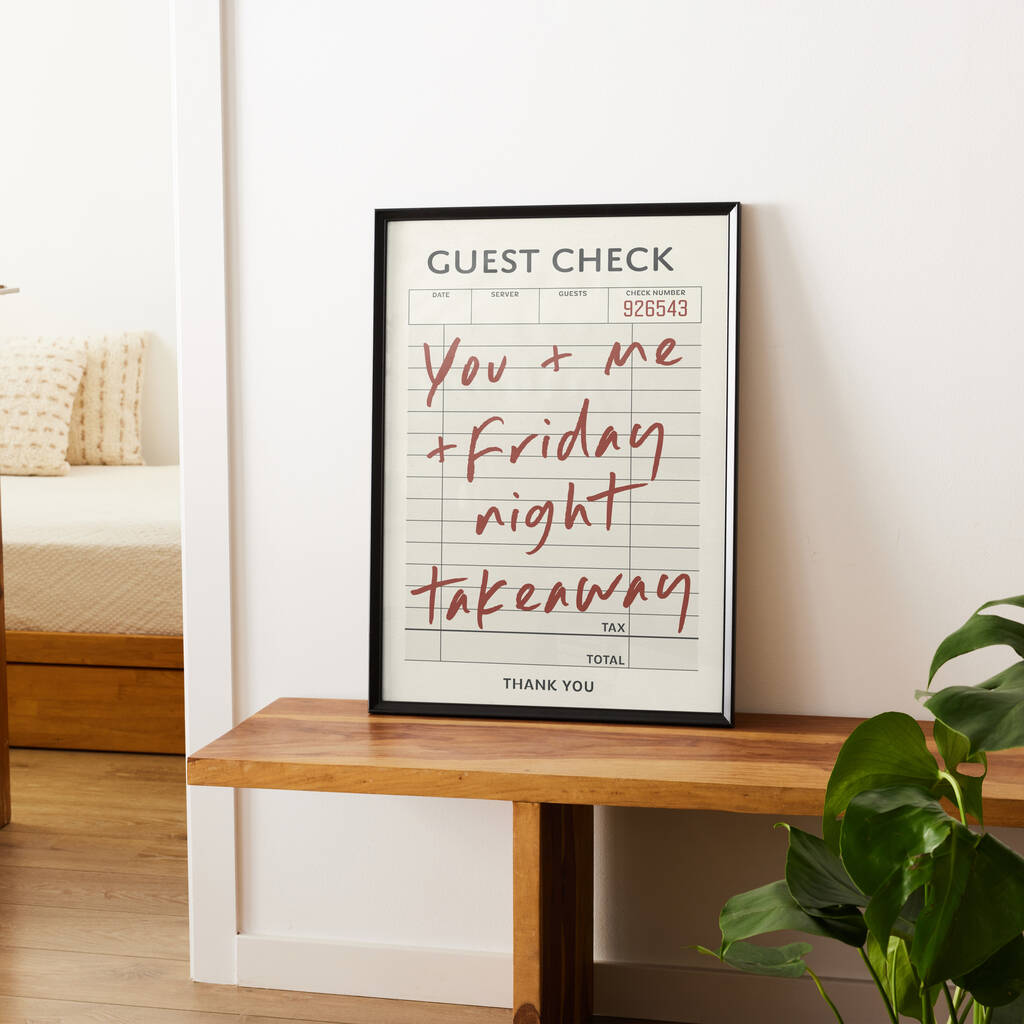 GUEST CHECK
DATE SERVER GUESTS CHECK NUMBER
926543
You + me
+ Friday
night
takeaway
TAX
TOTAL
THANK YOU